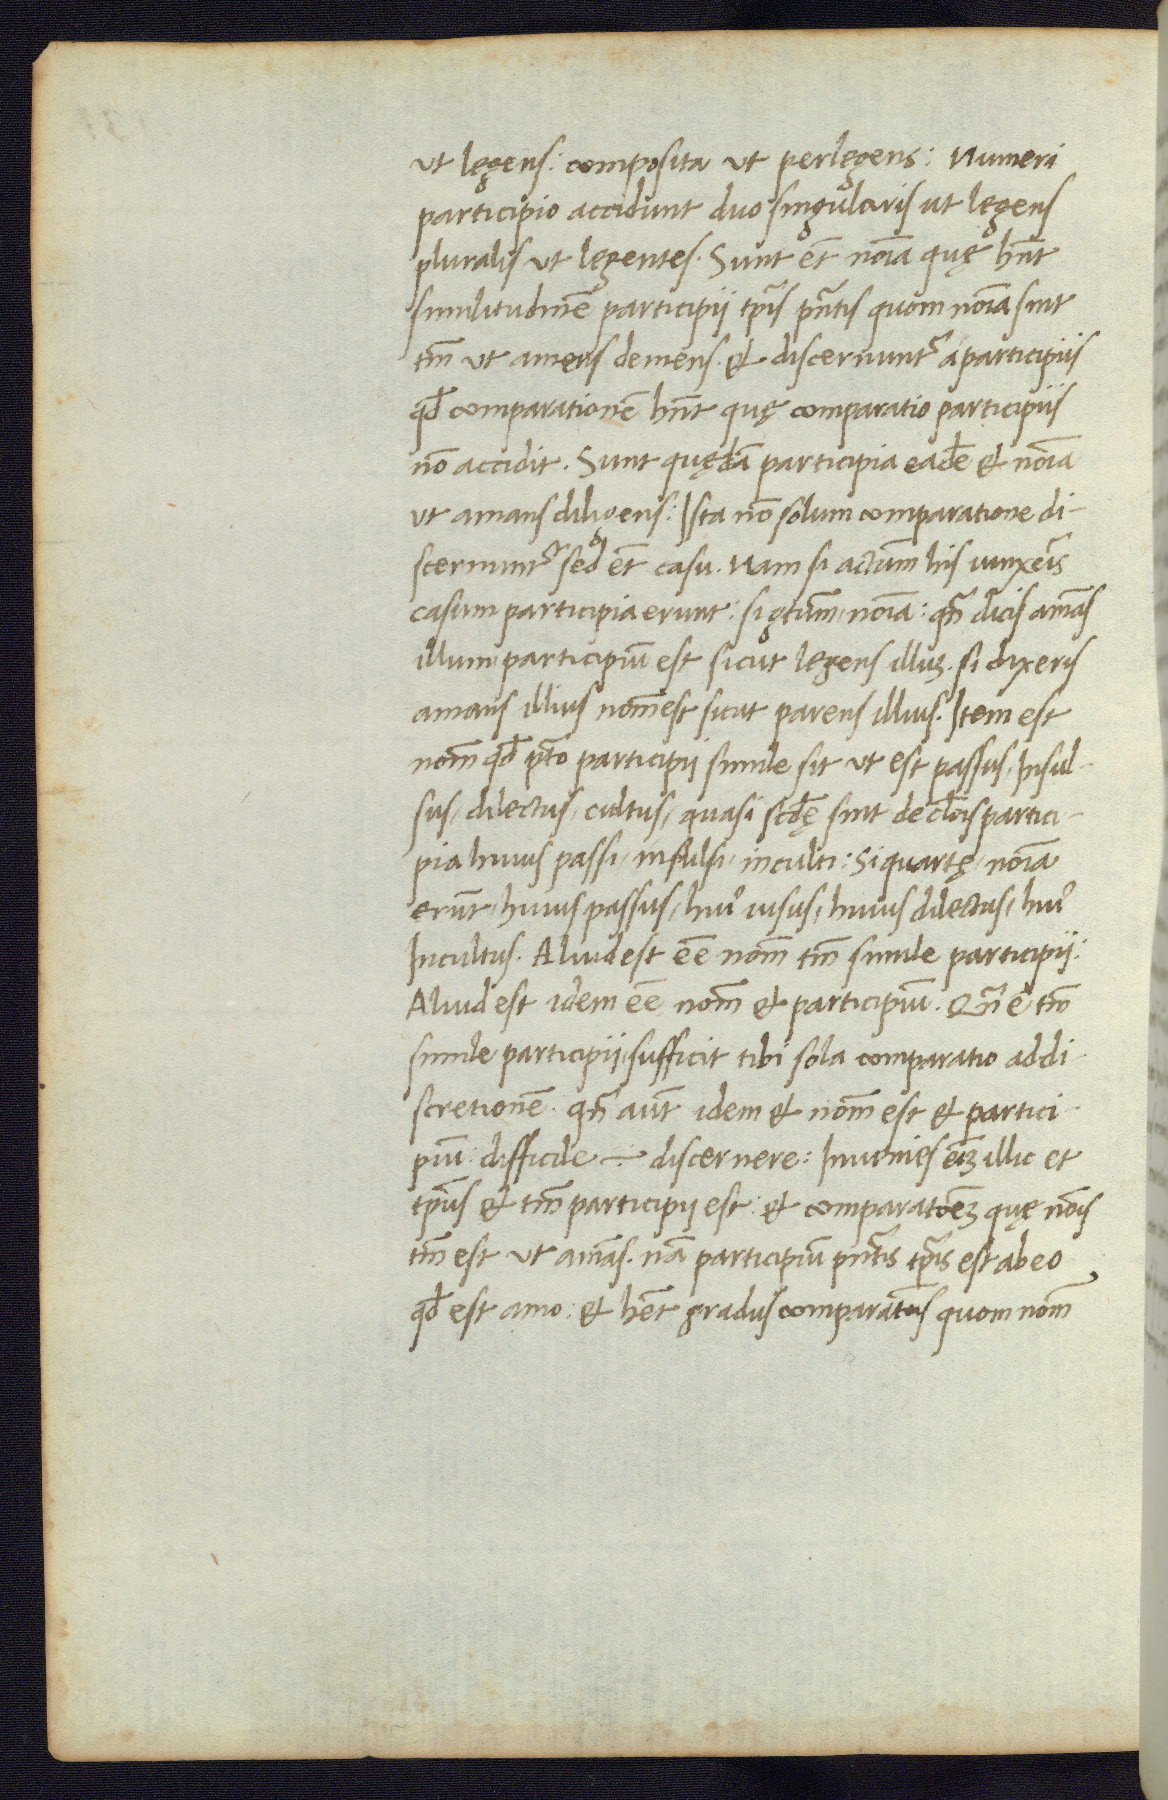 ut legens: composita ut perlegens: Numeri
participio accidunt duo singularis ut legens
pluralis ut legentes. Sunt et̄ noīa quę hn̄t
similitudinē participii tp̄is pn̄tis quom noīa sint
tm̄ ut amens demens. & discernuntʳ a participiis
qđ comparationē hn̄t quę comparatio participiis
nō accidit. Sunt quędā participia eadē & noīa
ut amans diligens: Ista nō solum comparatione di-
scernuntʳ sed et̄ casu. Nam si actūm his iunxeīs
casum participia erunt: si gtīum, noīa: qn̄ dicis amās
illum, participiū est sicut legens illuꝫ. si dixeris
amans illius nom̄ est sicut parens illius. Item est
nom̄ qđ pt̄o participii simile sit ut est passus, insul-
sus, dilectus, cultus, quasi scđę sint declōis partici-
pia huius passi, insulsi, inculti: Si quartę, noīa
erūt, huius passus, huiꝰ uisus, huius dilectus, huiꝰ
Incultus. Aliud est eē nom̄ tm̄ simile participii:
Aliud est idem eē nom̄ & participiū. Qn̄ ē tm̄
simile participii, sufficit tibi sola comparatio ad di-
scretionē. qn̄ aūt idem & nom̄ est & partici-
piū: difficile ÷ discernere: Inuenies eīꝫ illic et
tp̄us & tm̄ participii est: & comparatōeꝫ quę noīs
tm̄ est ut amās. nā participiū pn̄tis tp̄is est ab eo
qđ est amo: & hēt gradus comparatōis quom nom̄